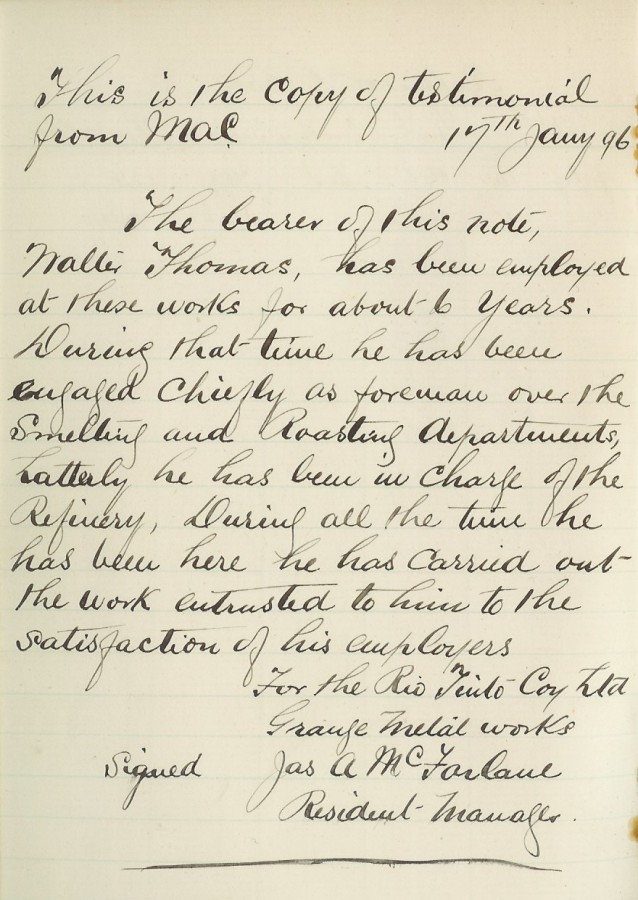 This is the copy of testimonial
from MaC. 17th Jany 96
The bearer of this note,
Walter Thomas, has been employed
at these works for about 6 Years.
During that time he has been
engaged Chiefly as foreman over the
Smelting and Roasting departments,
Latterly he has been in Charge of the
Refinery, During all the time he
has been here he has Carried out
the work entrusted to him to the
satisfaction of his employers
For the Rio Tinto Coy Ltd
Grange Metal works
Signed Jas A McFarlane
Resident Manager.